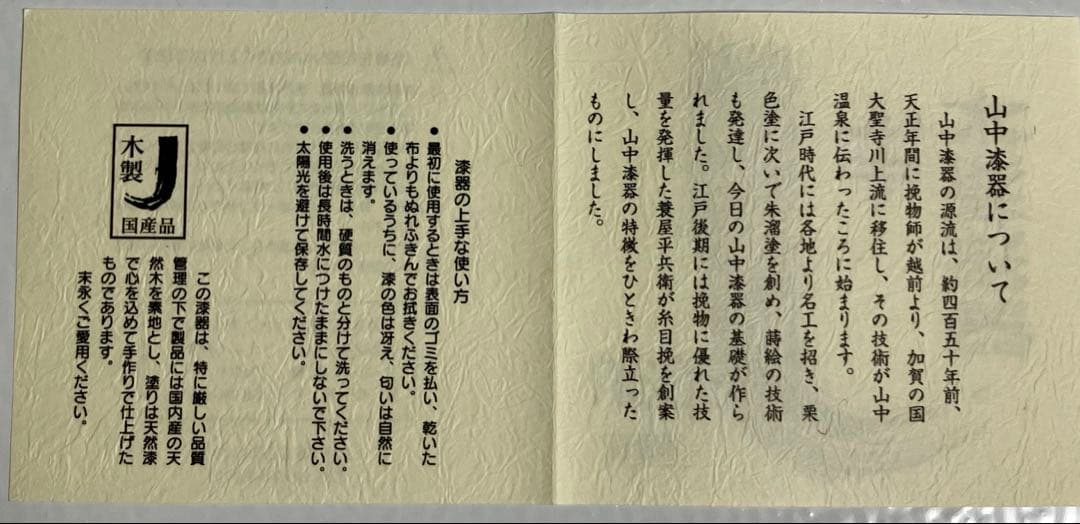 山中漆器について
山中漆器の源流は、約四百五十年前、
天正年間に挽物師が越前より、加賀の国
大聖寺川上流に移住し、その技術が山中
温泉に伝わったころに始まります。
江戸時代には各地より名工を招き、栗
色塗に次いで朱溜塗を創め、蒔絵の技術
も発達し、今日の山中漆器の基礎が作ら
れました。江戸後期には挽物に優れた技
量を発揮した蓑屋平兵衛が糸目挽を創案
し、山中漆器の特徴をひときわ際立った
ものにしました。
漆器の上手な使い方
●最初に使用するときは表面のゴミを払い、乾いた
布よりもぬれふきんでお拭きください。
●使っているうちに、漆の色は冴え、匂いは自然に
消えます。
●洗うときは、硬質のものと分けて洗ってください。
●使用後は長時間水につけたままにしないで下さい。
●太陽光を避けて保存してください。
木製
J
国産品
この漆器は、特に厳しい品質
管理の下で製品には国内産の天
然木を素地とし、塗りは天然漆
で心を込めて手作りで仕上げた
ものであります。
末永くご愛用ください。